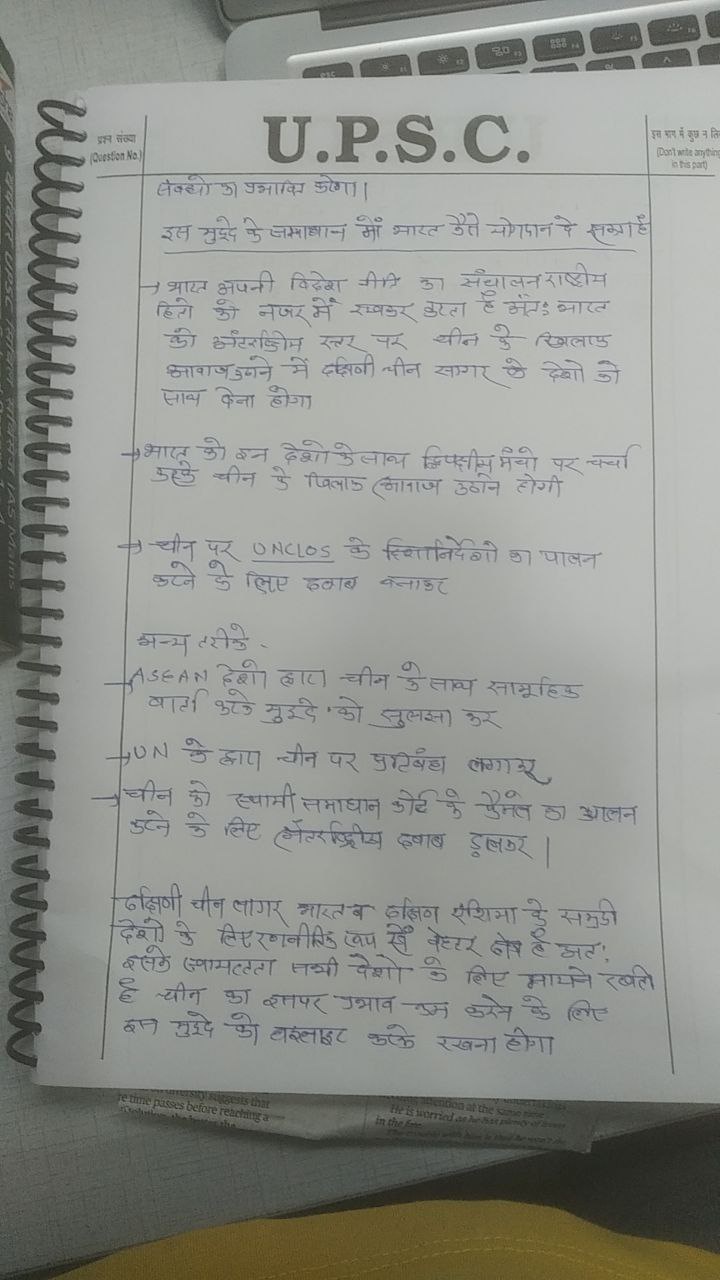 U.P.S.C.
प्रश्न संख्या
(Question No.)
इस भाग में कुछ न
(Don't write anything
in this part)
इस मुद्दे के समाधान में भारत कैसे योगदान दे सकता है
→ भारत अपनी विदेश नीति का संचालन राष्ट्रीय
हितो को नजर में रखकर करता है अतः भारत
को अंतर्राष्ट्रीय स्तर पर चीन के खिलाफ
आवाज उठाने में दक्षिणी चीन सागर के देशो को
साथ देना होगा
→ भारत को इन देशो के साथ द्विपक्षीय मंचो पर चर्चा
करके चीन के खिलाफ आवाज उठानी होगी
→ चीन पर UNCLOS के दिशानिर्देशो का पालन
करने के लिए दबाव बनाकर
अन्य तरीके -
→ ASEAN देशो द्वारा चीन के साथ सामूहिक
वार्ता करके मुद्दे को सुलझा कर
→ UN के द्वारा चीन पर प्रतिबंध लगाकर
→ चीन को स्थायी समाधान कोर्ट के फैसले का पालन
करने के लिए अंतर्राष्ट्रीय दबाव डालकर |
दक्षिणी चीन सागर भारत व दक्षिण एशिया के समुद्री
देशो के लिए रणनीतिक रूप से बेहतर क्षेत्र है अतः
इसके स्वायत्तता सभी देशो के लिए मायने रखती
है चीन का इसपर प्रभाव कम करने के लिए
इस मुद्दे को हाइलाइट करके रखना होगा
iversity suggests that
re time passes before reaching a
attention at the same time
He is worried as he has plenty of
in the